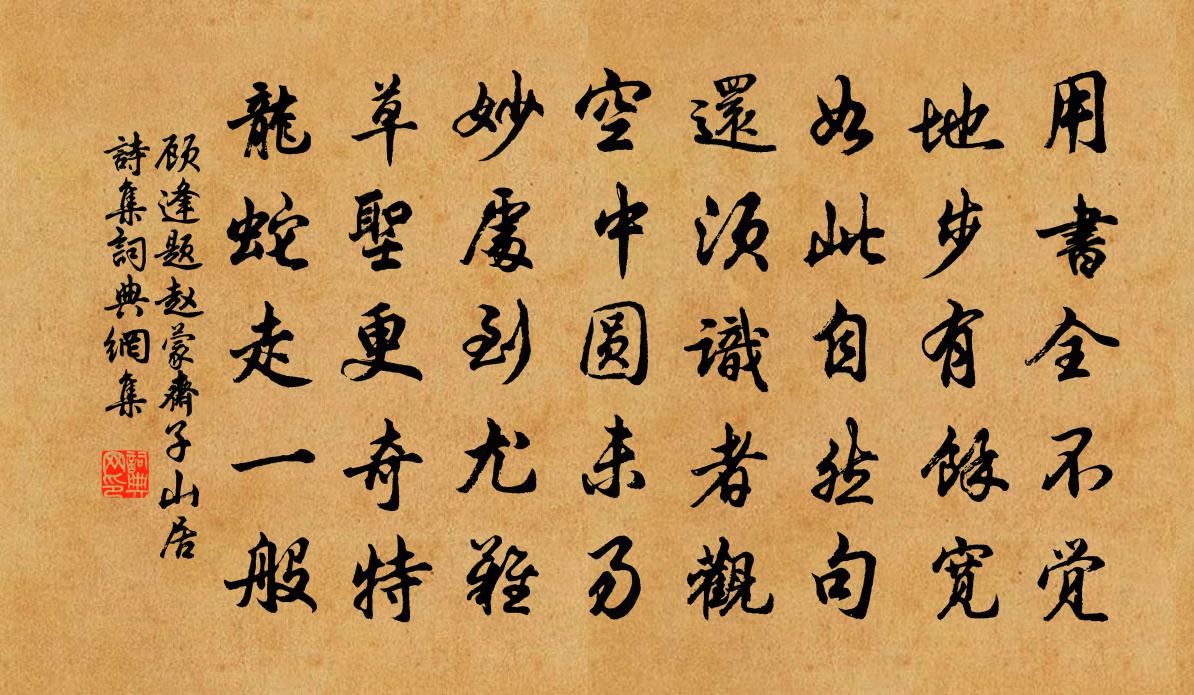 用書全不觉
地步有餘宽
如此自然句
還須識者觀
空中圆未易
妙處到尤難
草聖更奇特
龍蛇走一般
顾逢题赵蒙齋子山居
詩集詞典網集
詞典网印